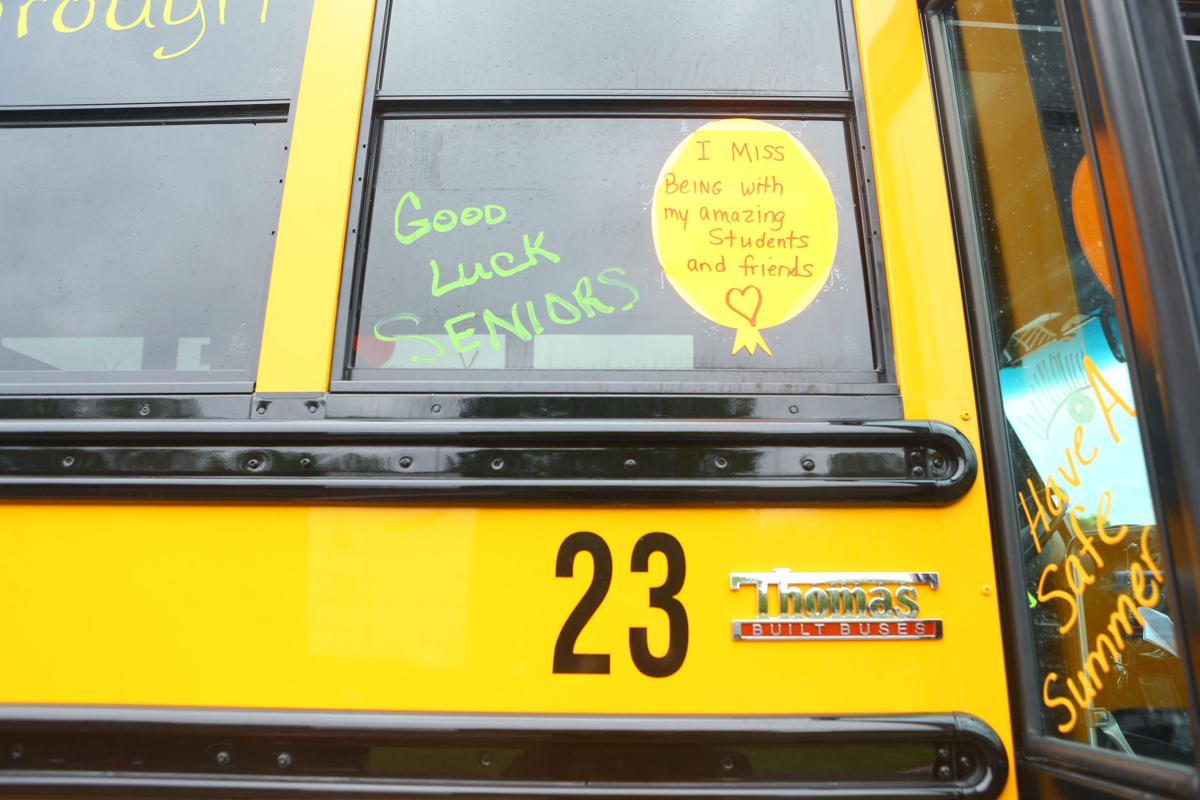 Good
Luck
SENIORS
I MISS
BEING with
my amazing
Students
and friends
Have A
Safe
Summer
23
Thomas
BUILT BUSES